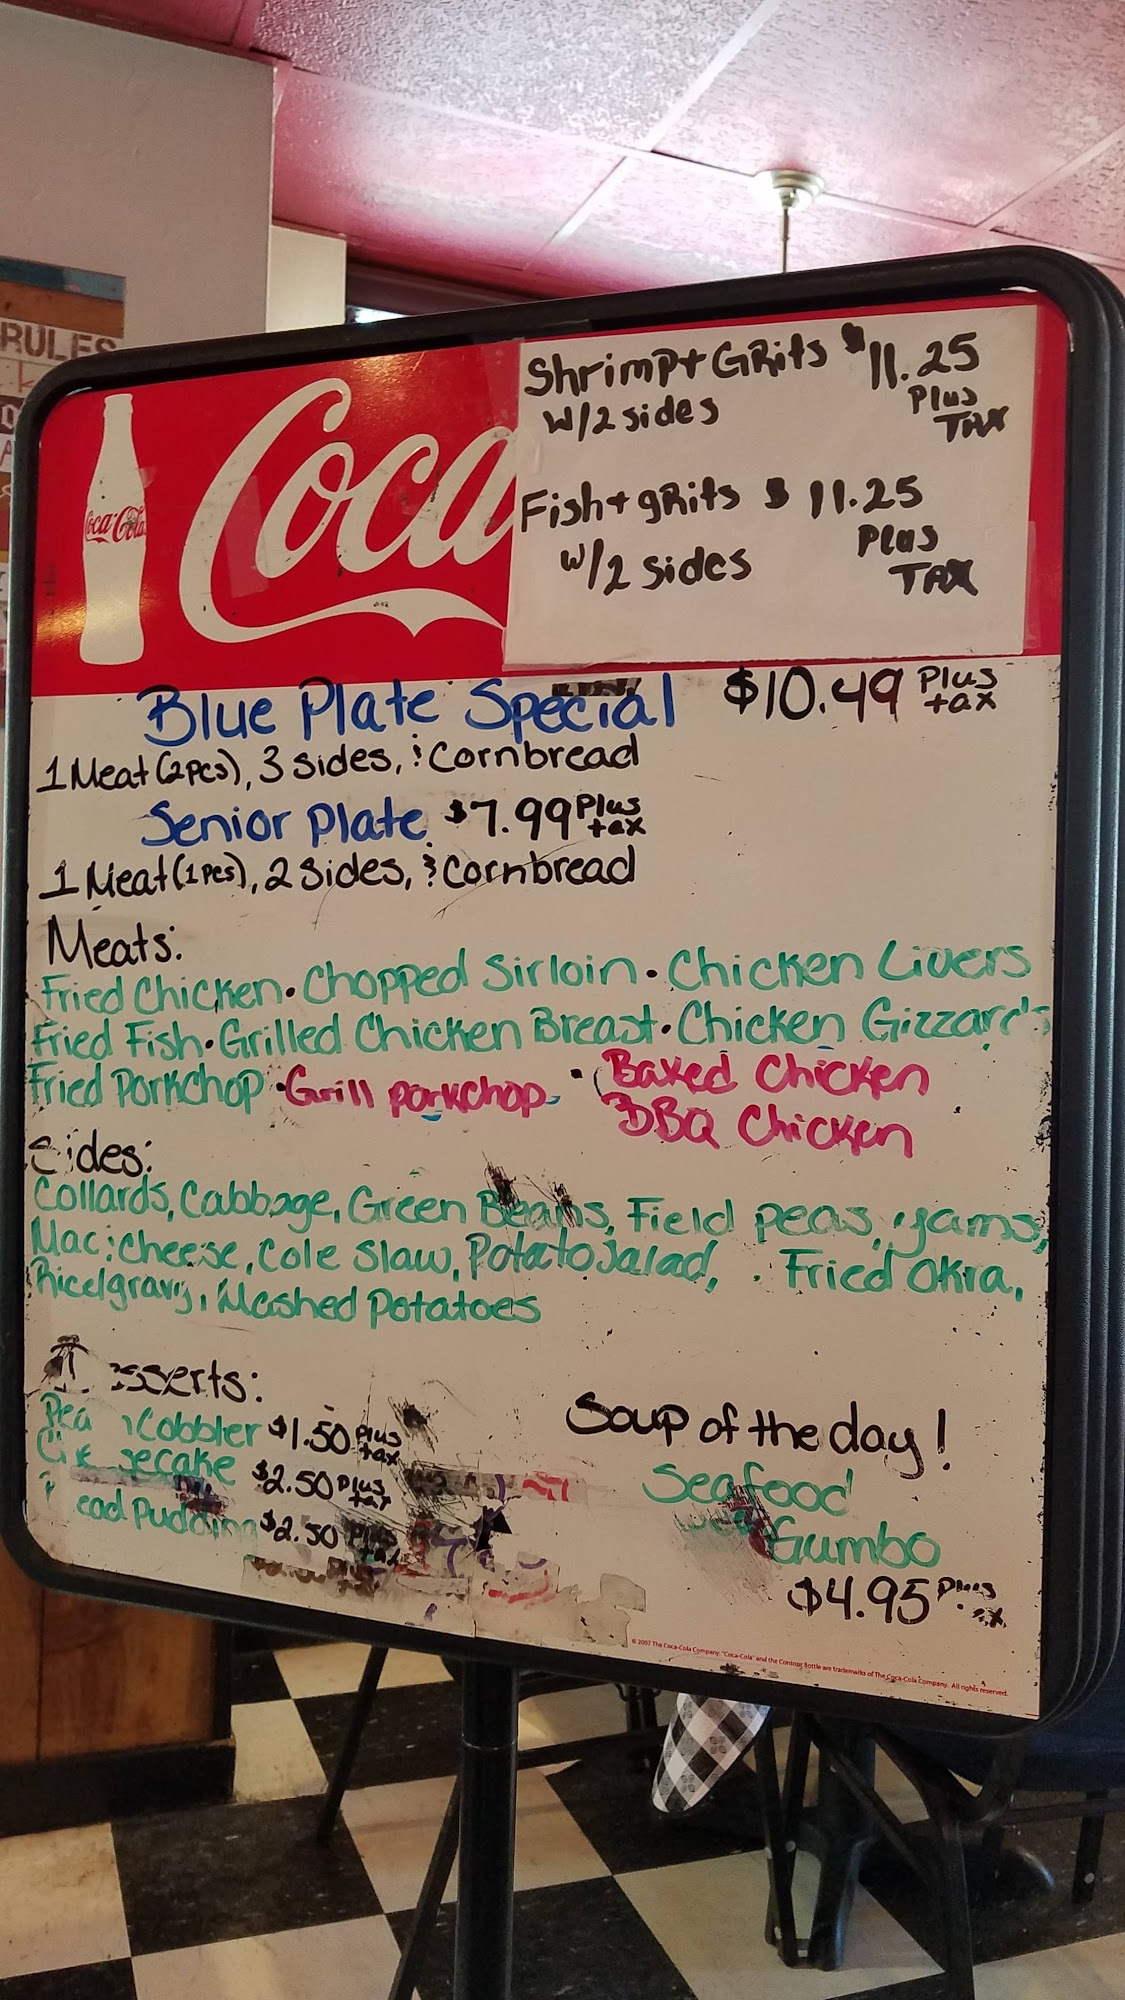 RULES
Coca-Cola
Coca
Shrimp+ GRits $11.25
W/2 sides
Plus
TAX
Fish+ gRits $11.25
W/2 sides
Plus
TAX
Blue Plate Special $10.49 Plus tax
1 Meat (2pcs), 3 sides, & Cornbread
Senior Plate $7.99 Plus tax
1 Meat (1pcs), 2 Sides, & Cornbread
Meats:
Fried Chicken · Chopped Sirloin · Chicken Livers
Fried Fish · Grilled Chicken Breast · Chicken Gizzards
Fried Porkchop · Grill porkchop · Baked Chicken
BBQ Chicken
Sides:
Collards, Cabbage, Green Beans, Field peas, yams,
Mac & Cheese, Cole Slaw, Potato Salad, Fried Okra,
Rice/gravy, Mashed Potatoes
sserts:
Pea Cobbler $1.50 Plus tax
secake $2.50 Plus tax
ead Pudding $2.50 Plus tax
Soup of the day!
Seafood
Gumbo
$4.95
© 2007 The Coca-Cola Company. "Coca-Cola" and the Contour Bottle are trademarks of The Coca-Cola Company. All rights reserved.